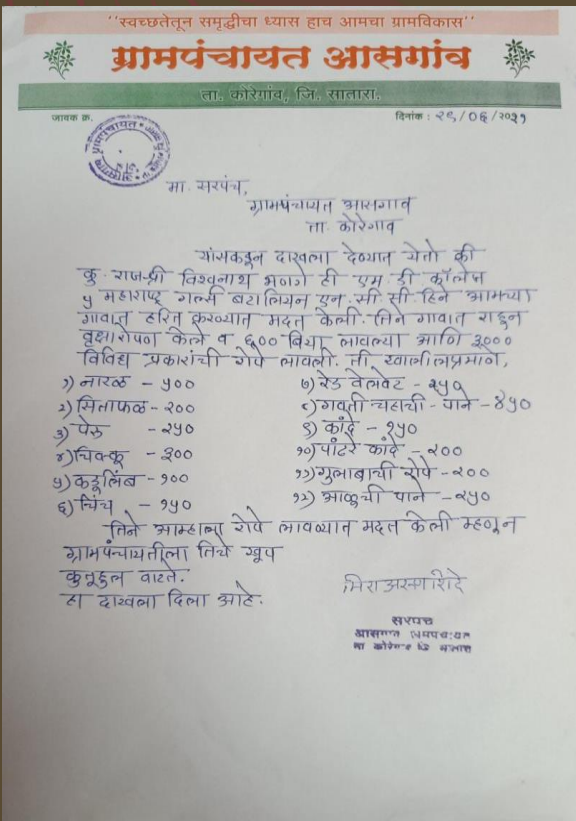 "स्वच्छतेतून समृद्धीचा ध्यास हाच आमचा ग्रामविकास"
ग्रामपंचायत आसगांव
ता. कोरेगांव, जि. सातारा.
जावक क्र.
दिनांक : २९/०६/२०२१
मा. सरपंच,
ग्रामपंचायत आसगाव
ता. कोरेगाव
यांसकडून दाखला देण्यात येतो की
कु. राजश्री विश्वनाथ भणगे ही एम. डी कॉलेज
५ महाराष्ट्र गर्ल्स बटालियन एन. सी. सी. हिने आमच्या
गावात हरित करण्यात मदत केली. तिने गावात राहून
वृक्षारोपण केले व ६०० बिया लावल्या आणि ३०००
विविध प्रकारांची रोपे लावली. ती खालीलप्रमाणे,
१) नारळ - ५००
२) सिताफळ - २००
३) पेरू - २५०
४) चिक्कू - ३००
५) कडूलिंब - १००
६) चिंच - १५०
७) रेड वेलवेट - २५०
८) गवती चहाची - पाने - ४५०
९) कांदे - १५०
१०) पांढरे कांदे - २००
११) गुलाबाची रोपे - २००
१२) आळूची पाने - २५०
तिने आम्हाला रोपे लावण्यात मदत केली म्हणून
ग्रामपंचायतीला तिचे खूप
कुतूहल वाटते.
हा दाखला दिला आहे.
सरपंच